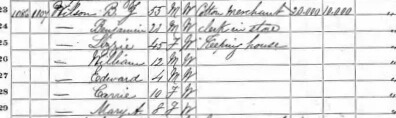 23 Wilson B. F. 55 M W Cotton merchant 20.000 10.000 "
24 — Benjamin 21 M W Clerk in store "
25 — Lizzie 45 F W Keeping house "
26 — William 12 M W "
27 — Edward 4 M W "
28 — Carrie 10 F W "
29 — Mary A 8 F W "